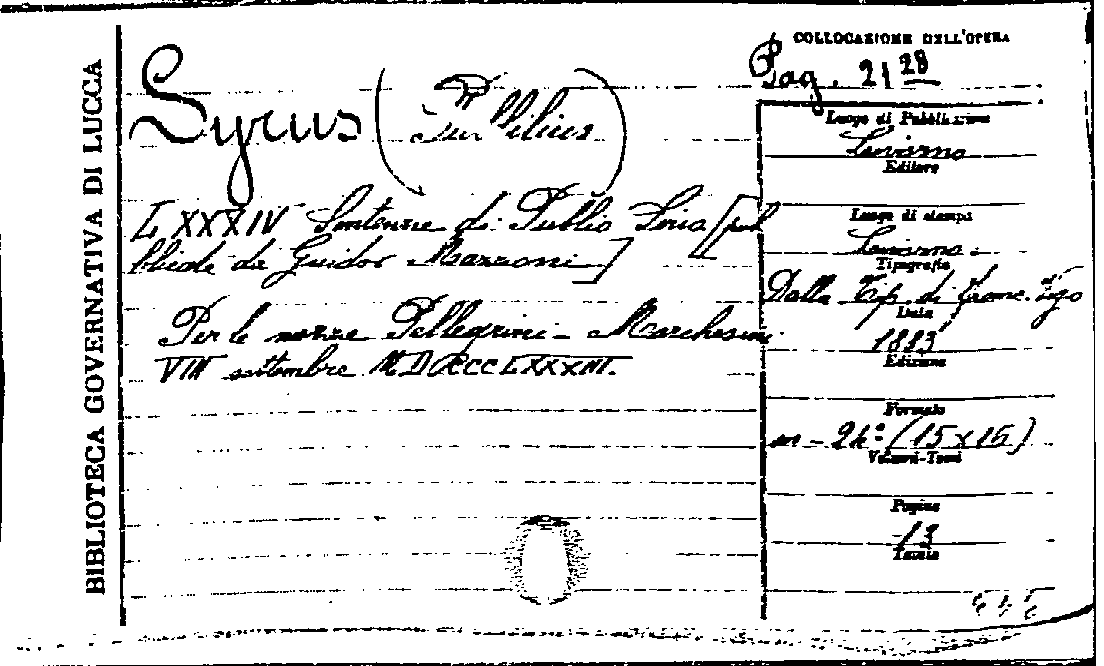 BIBLIOTECA GOVERNATIVA DI LUCCA
Syrus (Publilius)
LXXXIV Sentenze di Publio Siro [pub
blicate da Guido Mazzoni]
Per le nozze Pellegrini - Marchesini
VIII settembre MDCCCLXXXIII.
COLLOCAZIONE DELL'OPERA
Pag. 2128
Luogo di Pubblicazione
Livorno
Editore
Luogo di stampa
Livorno
Tipografia
Dalla Tip. di Franc. Vigo
Data
1883
Edizione
Formato
in-24° (15x16)
Volumi-Tomi
Pagine
13
Tavole